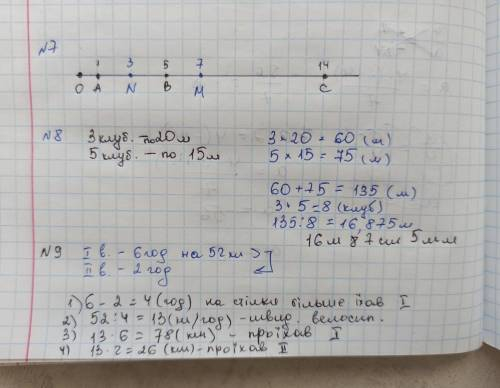 №7
1 3 5 7 14
O A N B M C
№8 3 клуб. - по 20 м 3 × 20 = 60 (м)
5 клуб. - по 15 м 5 × 15 = 75 (м)
60 + 75 = 135 (м)
3 + 5 = 8 (клуб)
135 : 8 = 16,875 м
16 м 87 см 5 мм
№9 I в. - 6 год на 52 км >
II в. - 2 год
1) 6 - 2 = 4 (год) на стільки більше їхав I
2) 52 : 4 = 13 (км/год) - швид. велосип.
3) 13 · 6 = 78 (км) - проїхав I
4) 13 · 2 = 26 (км) - проїхав II